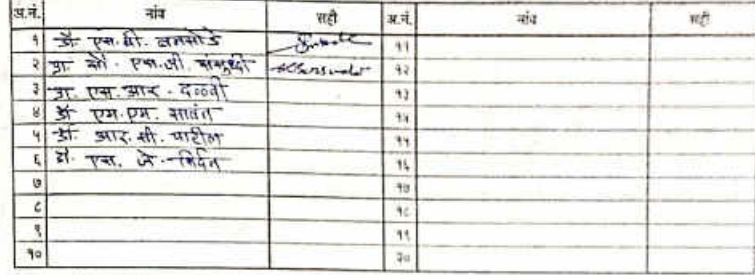 अ.नं. नांव सही अ.नं. नांव सही
१ डॉ. एस.बी. बनसोडे ११
२ प्रा. सौ. एस.जी. १२
३ प्रा. एस.आर. दळवी १३
४ डॉ. एम.एम. सावंत १४
५ डॉ. आर.सी. पाटील १५
६ डॉ. एस. जे. १६
७ १७
८ १८
९ १९
१० २०